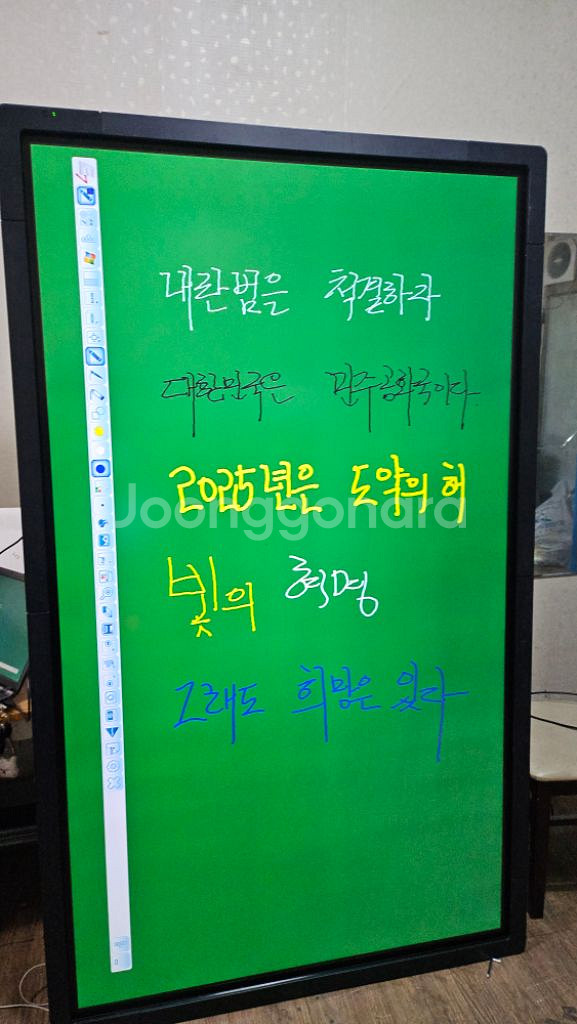 내란범은 척결하라
대한민국은 민주공화국이다
2025년은 도약의 허
Joonggonara
빛의 혁명
그래도 희망은 있다